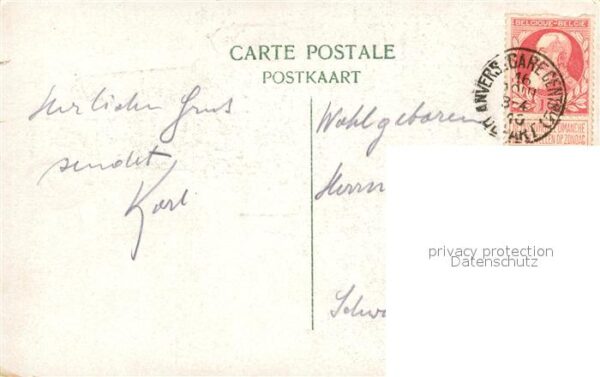 CARTE POSTALE
POSTKAART
Herzlichen Gruss
sendet
Karl
Wohlgeboren
Herrn
Schw
BELGIQUE·BELGIË
ANVERS-GARE CENTRALE
16
8-9
10
DEPART
privacy protection
Datenschutz